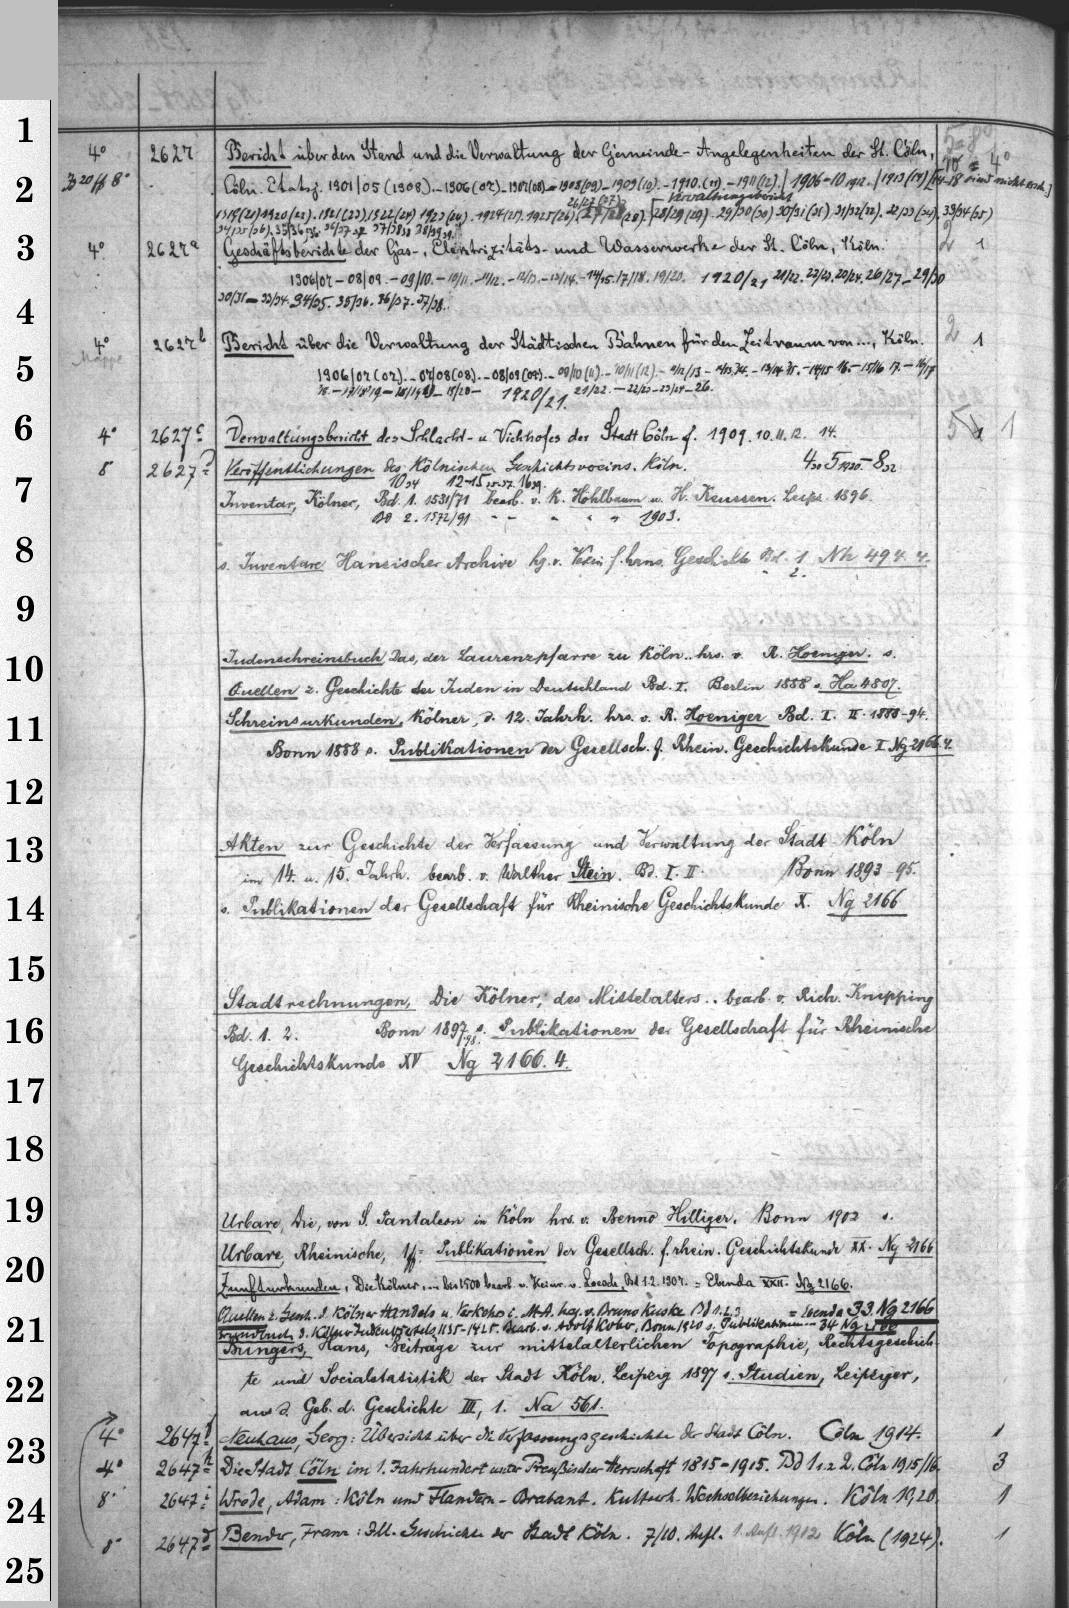 1
4° 2627 Bericht über den Stand und die Verwaltung der Gemeinde-Angelegenheiten der St. Cöln,
2
Cöln. Etatsj. 1901/05 (1908).-1906(07)-1907(08)-1908(09)-1909(10).-1910.(11)-1911(12).
1919(21) 1920(22). 1921(23) 1922(24) 1923(24). 1924(25). 1925(26)
26/27(27) Verwaltungsbericht 28/29(29)-29/30(30) 30/31(31). 31/32(32). 32/33(34). 33/34(35)
3
4° 2627a Geschäftsberichte der Gas-, Elektrizitäts- und Wasserwerke der St. Cöln, Köln. 2 1
1906/07-08/09.-09/10.-10/11-11/12.-12/13.-13/14.-14/15. 17/18. 19/20. 1920/21 21/22. 22/23. 26/27-29/30
4
30/31-33/34. 34/35. 35/36. 36/37. 37/38.
4° Mappe 2627b Bericht über die Verwaltung der Städtischen Bahnen für den Zeitraum von..., Köln. 2 1
5
1906/07(07).-07/08(08).-08/09(09).-09/10(11)-10/11(12).
1920/21. 21/22.-22/23-23/24-26.
6
4° 2627c Verwaltungsbericht des Schlacht- u Viehhofes der Stadt Cöln f. 1909. 10. 11. 12. 14. 5 1 1
8° 2627d Veröffentlichungen des Kölnischen Geschichtsvereins. Köln.
7
Inventar, Kölner, Bd. 1. 1531/71 bearb. v. K. Höhlbaum u. H. Keussen. Leipz. 1896.
Bd 2. 1572/91 " " " " " 1903.
8
s. Inventare Hansischer Archive hg. v. Verein f. hans. Geschichte Bd. 1 2. Nh 494. 4.
9
10
Judenschreinsbuch, Das, der Laurenzpfarre zu Köln.. hrs. v. R. Hoeniger. s.
Quellen z. Geschichte der Juden in Deutschland Bd. I. Berlin 1888 s. Ha 4807.
11
Schreinsurkunden, Kölner, d. 12. Jahrh. hrs. v. R. Hoeniger Bd. I. II. 1888-94.
Bonn 1888 s. Publikationen der Gesellsch. f. Rhein. Geschichtskunde I Ng 2166. 4.
12
13
Akten zur Geschichte der Verfassung und Verwaltung der Stadt Köln
im 14. u. 15. Jahrh. bearb. v. Walther Stein. Bd. I. II. Bonn 1893-95.
14
s. Publikationen der Gesellschaft für Rheinische Geschichtskunde X. Ng 2166
15
Stadtrechnungen, Die Kölner, des Mittelalters.. bearb. v. Rich. Knipping
16
Bd. 1. 2. Bonn 1897/98. s. Publikationen der Gesellschaft für Rheinische
Geschichtskunde XV Ng 2166. 4.
17
18
19
Urbare, Die, von S. Pantaleon in Köln hrs. v. Benno Hilliger. Bonn 1902 s.
Urbare, Rheinische, 1 = Publikationen der Gesellsch. f. rhein. Geschichtskunde XX. Ng 2166
20
Zunfturkunden, Die Kölner, ... bis 1500 bearb. v. Heinr. v. Loesch, Bd 1.2. 1907. = Ebenda XXII. Ng 2166.
Quellen z. Gesch. d. Kölner Handels u. Verkehrs i. M-A. hsg. v. Bruno Kuske Bd 1.2.3 = Ebenda 33. Ng 2166
21
Grundbuch d. Kölner Judenviertels, 1135-1425. Bearb. v. Adolf Kober. Bonn 1920 s. Publikationen ... 34 Ng 2166
Büngers, Hans, Beiträge zur mittelalterlichen Topographie, Rechtsgeschich-
22
te und Socialstatistik der Stadt Köln. Leipzig 1897 s. Studien, Leipziger,
aus d. Geb. d. Geschichte III, 1. Na 561.
4° 2647f Neuhaus, Georg: Übersicht über die Verfassungsgeschichte der Stadt Cöln. Cöln 1914. 1
23
4° 2647h Die Stadt Cöln im 1. Jahrhundert unter Preußischer Herrschaft 1815-1915. Bd 1 1.2 2. Cöln 1915/16. 3
8° 2647i Wrede, Adam: Köln und Flandern-Brabant. Kulturh. Wechselbeziehungen. Köln 1920. 1
24
8° 2647d Bender, Franz: Ill. Geschichte der Stadt Köln. 7/10. Aufl. 1. Aufl. 1912 Köln (1924). 1
25